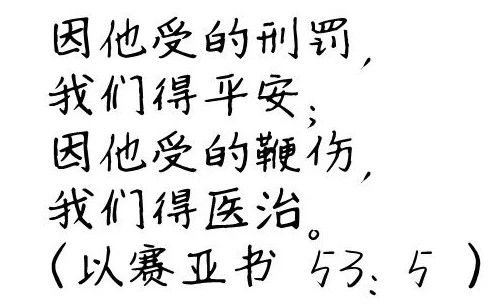 因他受的刑罚,
我们得平安;
因他受的鞭伤,
我们得医治。
(以赛亚书 53:5)